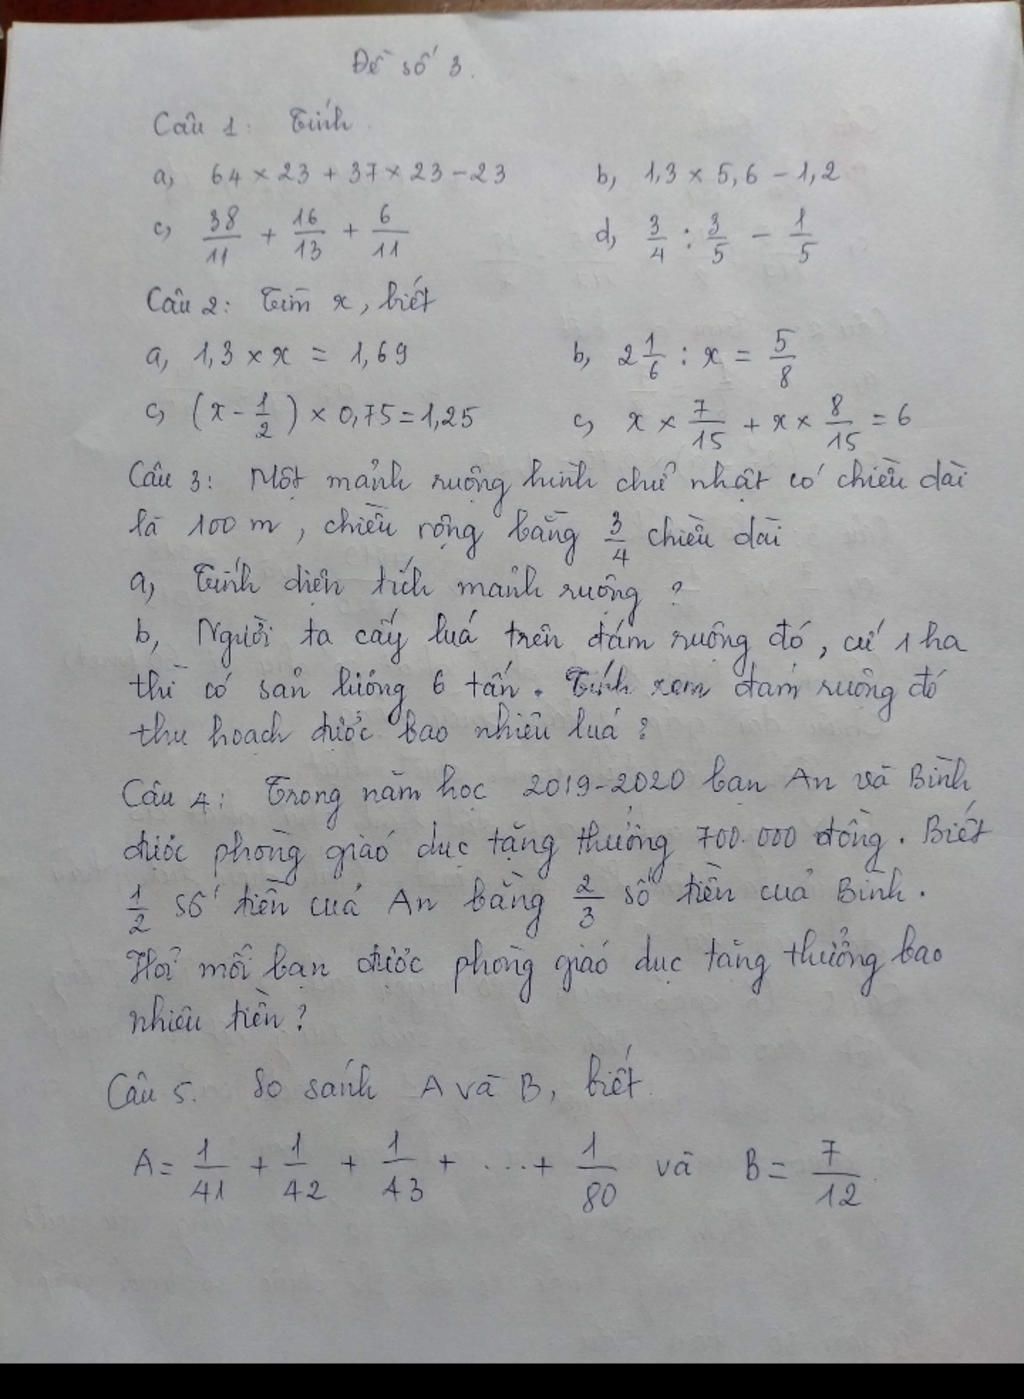 Đề số 3.
Câu 1: Tính
a, 64 × 23 + 37 × 23 - 23 b, 1,3 × 5,6 - 1,2
c, 38/11 + 16/13 + 6/11 d, 3/4 : 3/5 - 1/5
Câu 2: Tìm x, biết
a, 1,3 × x = 1,69 b, 2 1/6 : x = 5/8
c, (x - 1/2) × 0,75 = 1,25 c, x × 7/15 + x × 8/15 = 6
Câu 3: Một mảnh ruộng hình chữ nhật có chiều dài
là 100 m, chiều rộng bằng 3/4 chiều dài
a, Tính diện tích mảnh ruộng ?
b, Người ta cấy luá trên đám ruộng đó, cứ 1 ha
thì có sản lượng 6 tấn. Tính xem đám ruộng đó
thu hoạch được bao nhiêu luá ?
Câu 4: Trong năm học 2019-2020 bạn An và Bình
được phòng giáo dục tặng thưởng 700.000 đồng. Biết
1/2 số tiền cuả An bằng 2/3 số tiền cuả Bình.
Hỏi mỗi bạn được phòng giáo dục tặng thưởng bao
nhiêu tiền ?
Câu 5. So sánh A và B, biết
A = 1/41 + 1/42 + 1/43 + ... + 1/80 và B = 7/12